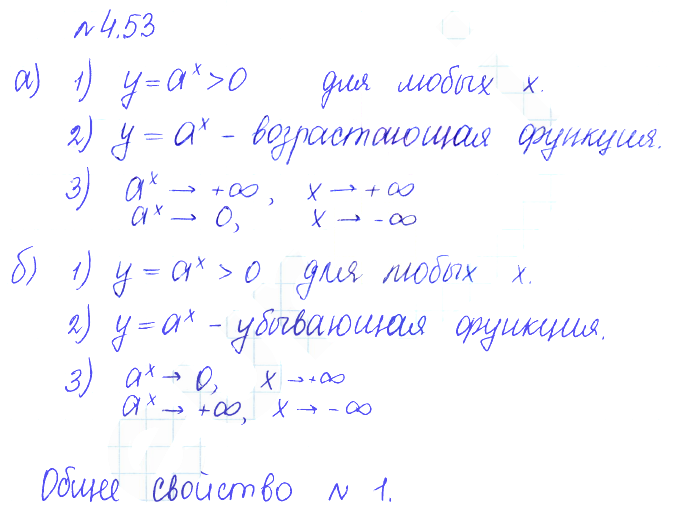 №4.53
а) 1) y = aˣ > 0 для любых x.
2) y = aˣ – возрастающая функция.
3) aˣ → +∞, x → +∞
aˣ → 0, x → -∞
б) 1) y = aˣ > 0 для любых x.
2) y = aˣ – убывающая функция.
3) aˣ → 0, x → +∞
aˣ → +∞, x → -∞
Общее свойство № 1.